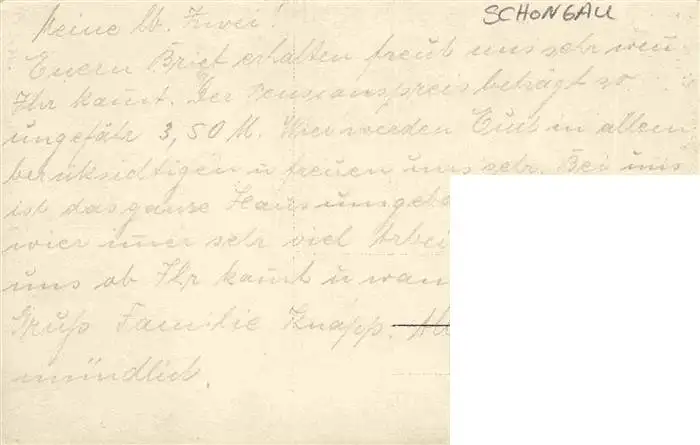 SCHONGAU
Meine lb. Zwei!
Euern Brief erhalten freut uns sehr wen
Ihr kamt. Der Pensionspreis beträgt so
ungefähr 3,50 M. Wier werden Euch in allem
berüksichtigen u freuen uns sehr. Bei uns
ist das ganze Haus umgeba
wier imer sehr viel Arbei
uns ob Ihr kamt u wan
Gruß Familie Knapp.
mündlich.